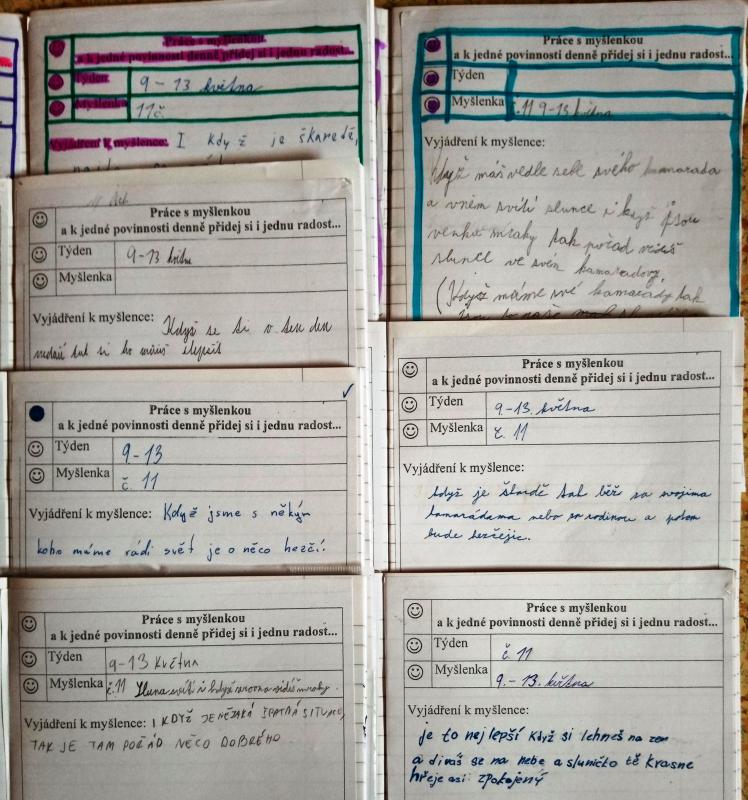 Práce s myšlenkou
a k jedné povinnosti denně přidej si i jednu radost...
Týden 9-13 května
Myšlenka 11č.
Vyjádření k myšlence: I když je škaredě,
Práce s myšlenkou
a k jedné povinnosti denně přidej si i jednu radost...
Týden
Myšlenka č.11 9-13 května
Vyjádření k myšlence:
Když máš vedle sebe svého kamarada
a vněm svítí slunce i když jsou
venku mraky tak pořad vidíš
slunce ve svém kamaradovy.
(Když máme své kamarady tak
Práce s myšlenkou
a k jedné povinnosti denně přidej si i jednu radost...
Týden 9-13 květn
Myšlenka
Vyjádření k myšlence: Když se ti v ten den
nedaří tak si ho můžeš zlepšit
Práce s myšlenkou
a k jedné povinnosti denně přidej si i jednu radost...
Týden 9-13. května
Myšlenka č. 11
Vyjádření k myšlence:
když je škardě tak běž sa svojima
kamarádama nebo sa rodinou a potom
bude hezčejic.
Práce s myšlenkou
a k jedné povinnosti denně přidej si i jednu radost...
Týden 9-13
Myšlenka č. 11
Vyjádření k myšlence: Když jsme s někým
koho máme rádi svět je o něco hezčí.
Práce s myšlenkou
a k jedné povinnosti denně přidej si i jednu radost...
Týden 9-13 Května
Myšlenka č.11 svítí i když zrovna vidíš mraky.
Vyjádření k myšlence: I KDYŽ JE NĚJAKÁ ŠPATNÁ SITUACE,
TAK JE TAM POŘÁD NĚCO DOBRÉHO
Práce s myšlenkou
a k jedné povinnosti denně přidej si i jednu radost...
Týden č. 11
Myšlenka 9.-13. května
Vyjádření k myšlence:
je to nejlepší Když si lehneš na zem
a diváš se na nebe a sluníčto tě krasne
hřeje asi zpokojený